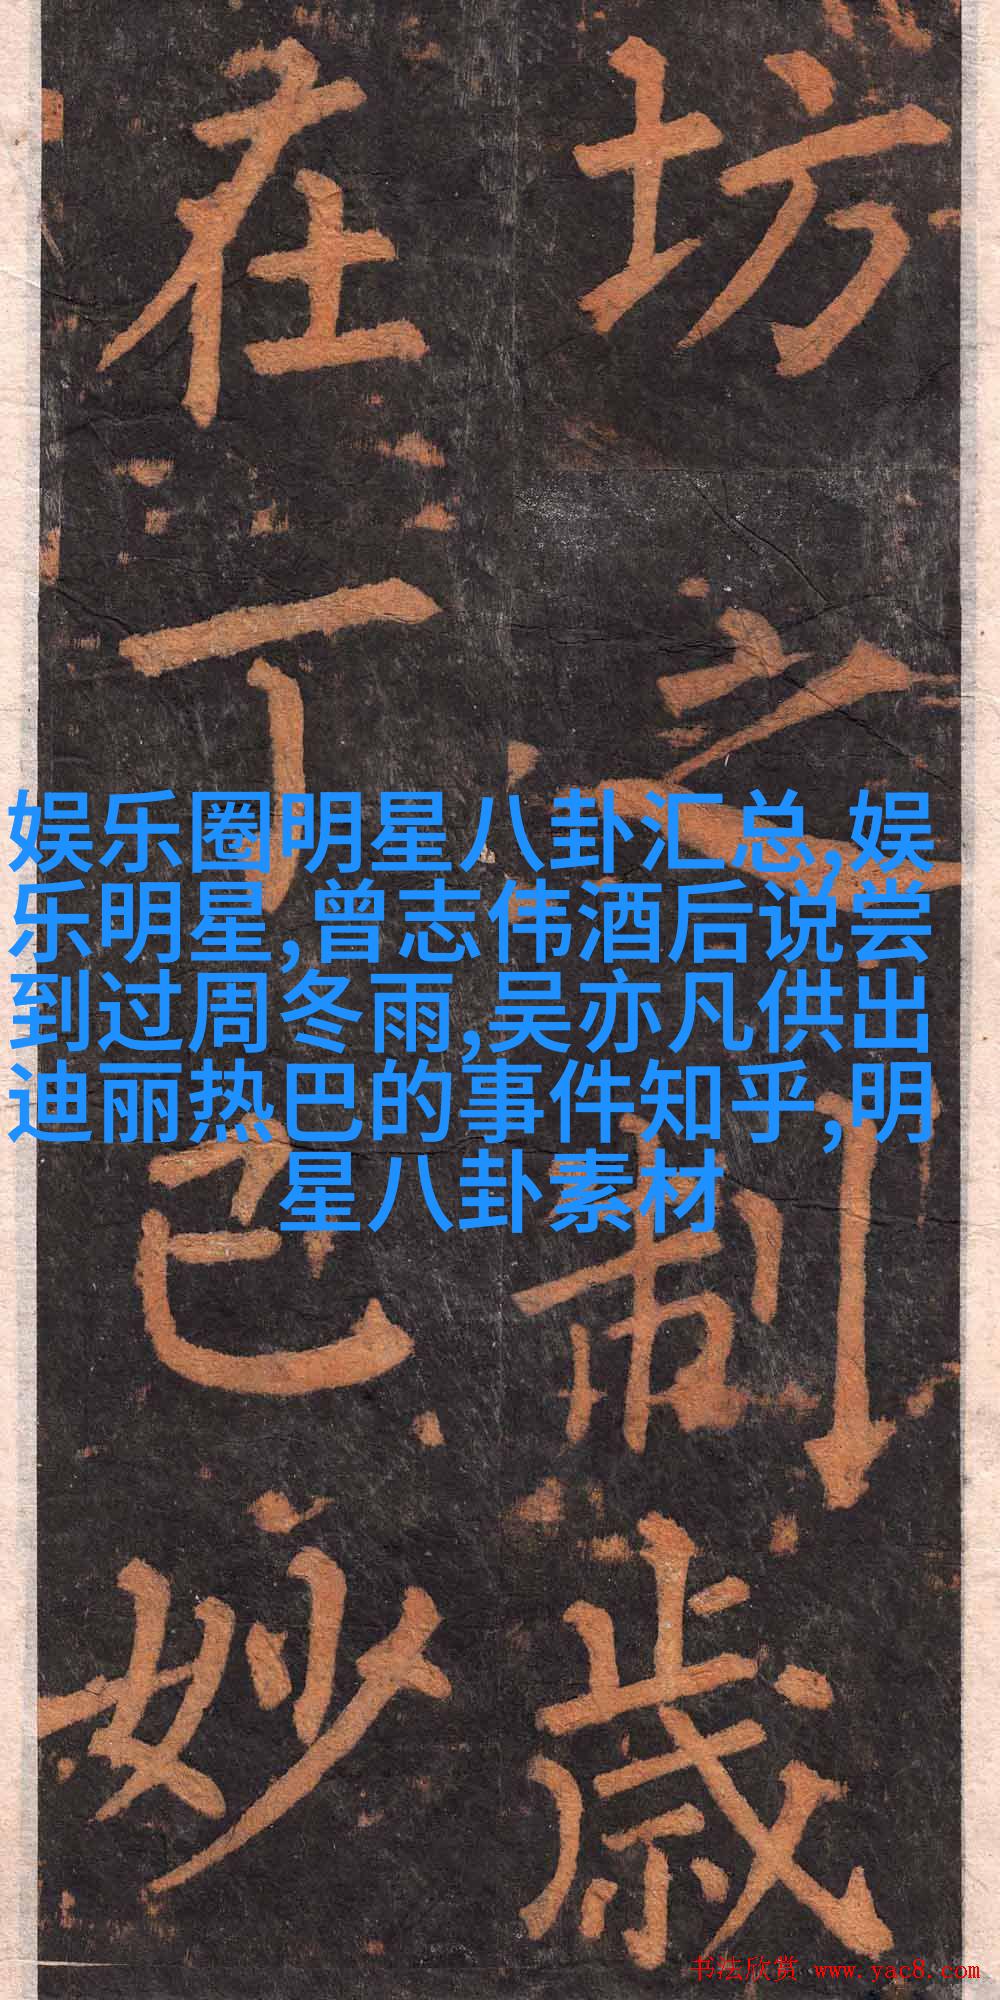 坊之制歲
在丁巳妙
娱乐圈明星八卦汇总,娱
乐明星,曾志伟酒后说尝
到过周冬雨,吴亦凡供出
迪丽热巴的事件知乎,明
星八卦素材
书法欣赏 www.yac8.com